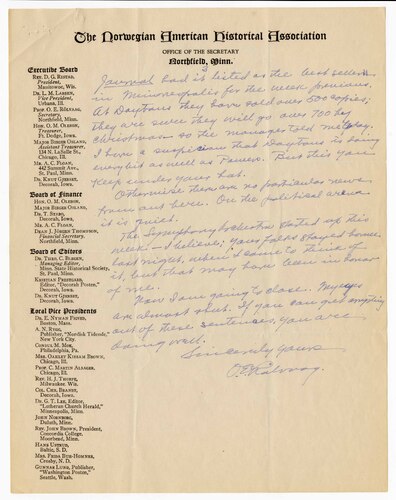 The Norwegian American Historical Association
OFFICE OF THE SECRETARY
Northfield, Minn.
Executive Board
REV. D. G. RISTAD,
President,
Manitowoc, Wis.
DR. L. M. LARSON,
Vice President,
Urbana, Ill.
PROF. O. E. RÖLVAAG,
Secretary,
Northfield, Minn.
HON. O. M. OLESON,
Treasurer,
Ft. Dodge, Iowa.
MAJOR BIRGER OSLAND,
Assistant Treasurer,
134 N. LaSalle St.
Chicago, Ill.
MR. A. C. FLOAN,
St. Paul, Minn.
DR. KNUT GJERSET,
Decorah, Iowa.
Board of Finance
HON. O. M. OLESON,
MAJOR BIRGER OSLAND,
DR. T. STABO,
Decorah, Iowa.
MR. A. C. FLOAN,
DEAN J. JÖRGEN THOMPSON,
Financial Secretary,
Northfield, Minn.
Board of Editors
DR. THEO. C. BLEGEN,
Managing Editor,
Minn. State Historical Society,
St. Paul, Minn.
KRISTIAN PRESTGARD,
Editor, "Decorah Posten,"
Decorah, Iowa.
DR. KNUT GJERSET,
Decorah, Iowa.
Local Vice Presidents
Boston, Mass.
A. N. RYGG,
Publisher, "Nordisk Tidende,"
New York City.
Philadelphia, Pa.
Chicago, Ill.
Chicago, Ill.
REV. H. J. THORPE,
Milwaukee, Wis.
COL. CHR. BRANDT,
Decorah, Iowa.
DR. G. T. LEE, Editor,
"Lutheran Church Herald,"
Minneapolis, Minn.
JOHN NORBORG,
Duluth, Minn.
REV. JOHN BROWN, President,
Concordia College,
Moorhead, Minn.
HANS USTRUD,
Baltic, S. D.
MRS. FRIDA BUE-HOMNES,
Crosby, N. D.
GUNNAR LUND, Publisher,
"Washington Posten,"
Seattle, Wash.
Journal had it listed as the best seller
in Minneapolis for the week previous.
At Daytons they have sold over 500 copies;
they are sure they will go over 700 by
Christmas so the manager told me
I have a suspicion that Daytons is doing
everybit as well as Powers. But this you
keep under your hat.
Otherwise there are no particular news
from out here. On the political arena
it is quiet.
The Symphony Orchestra started up this
week—I believe; your folks stayed home
last night, when I come to think of
it, but that may have been in honor
of me.
Now I am going to close. My eyes
are almost shut. If you can get anything
out of these sentences, you are
doing well.
Sincerely yours
O. E. Rölvaag.